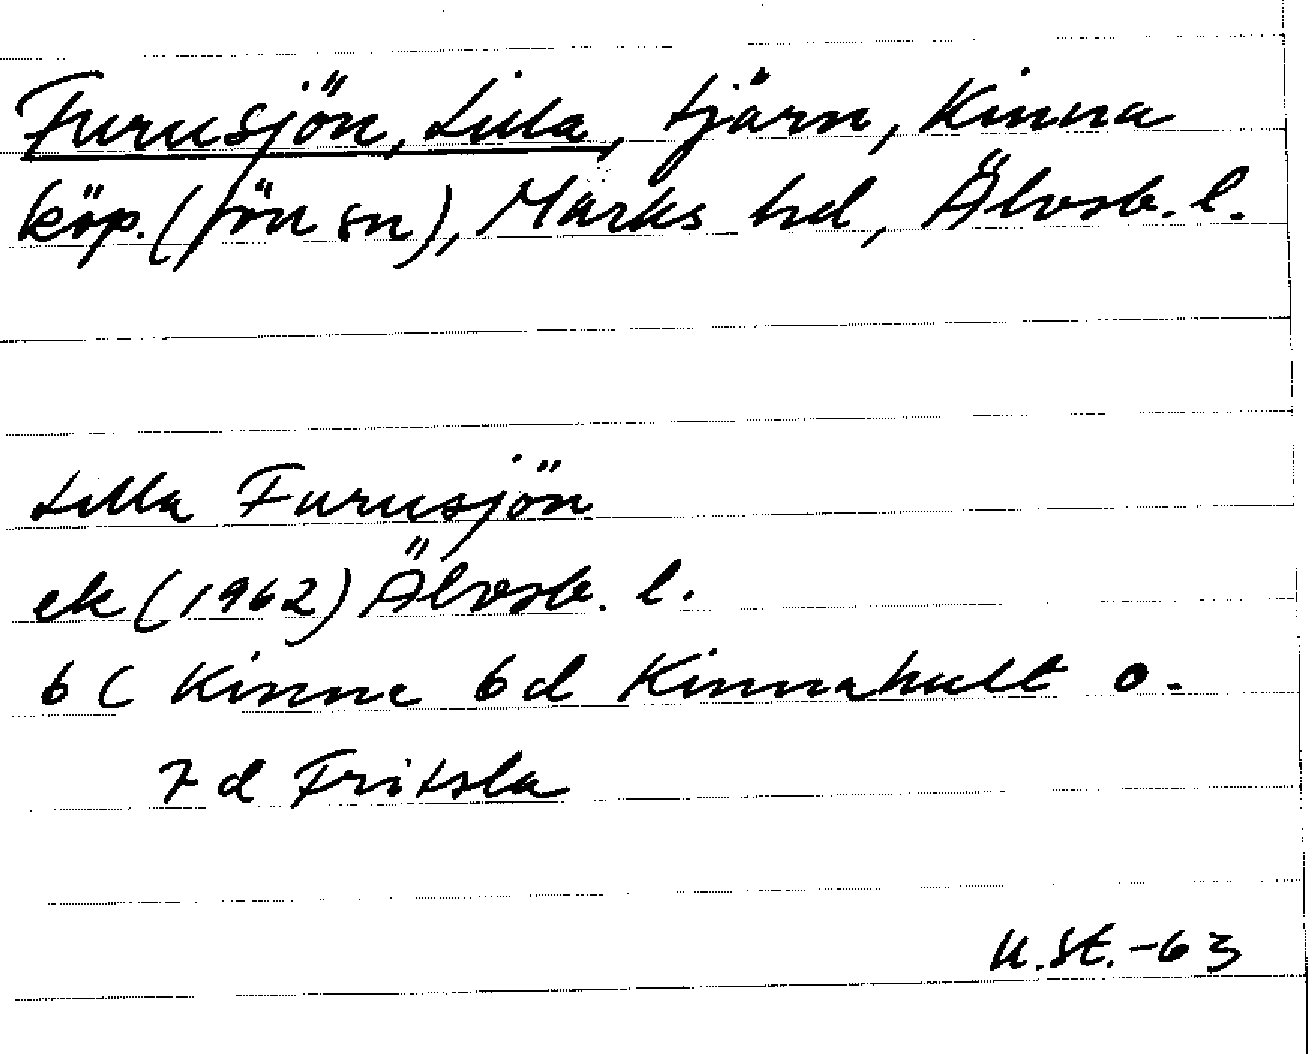 Furusjön, Lilla, tjärn, Kinna
köp. (förr sn), Marks hd, Älvsb. l.
Lilla Furusjön
ek (1962) Älvsb. l.
6 c Kinna 6 d Kinnahult o.
7 d Fritsla
U.St. -63